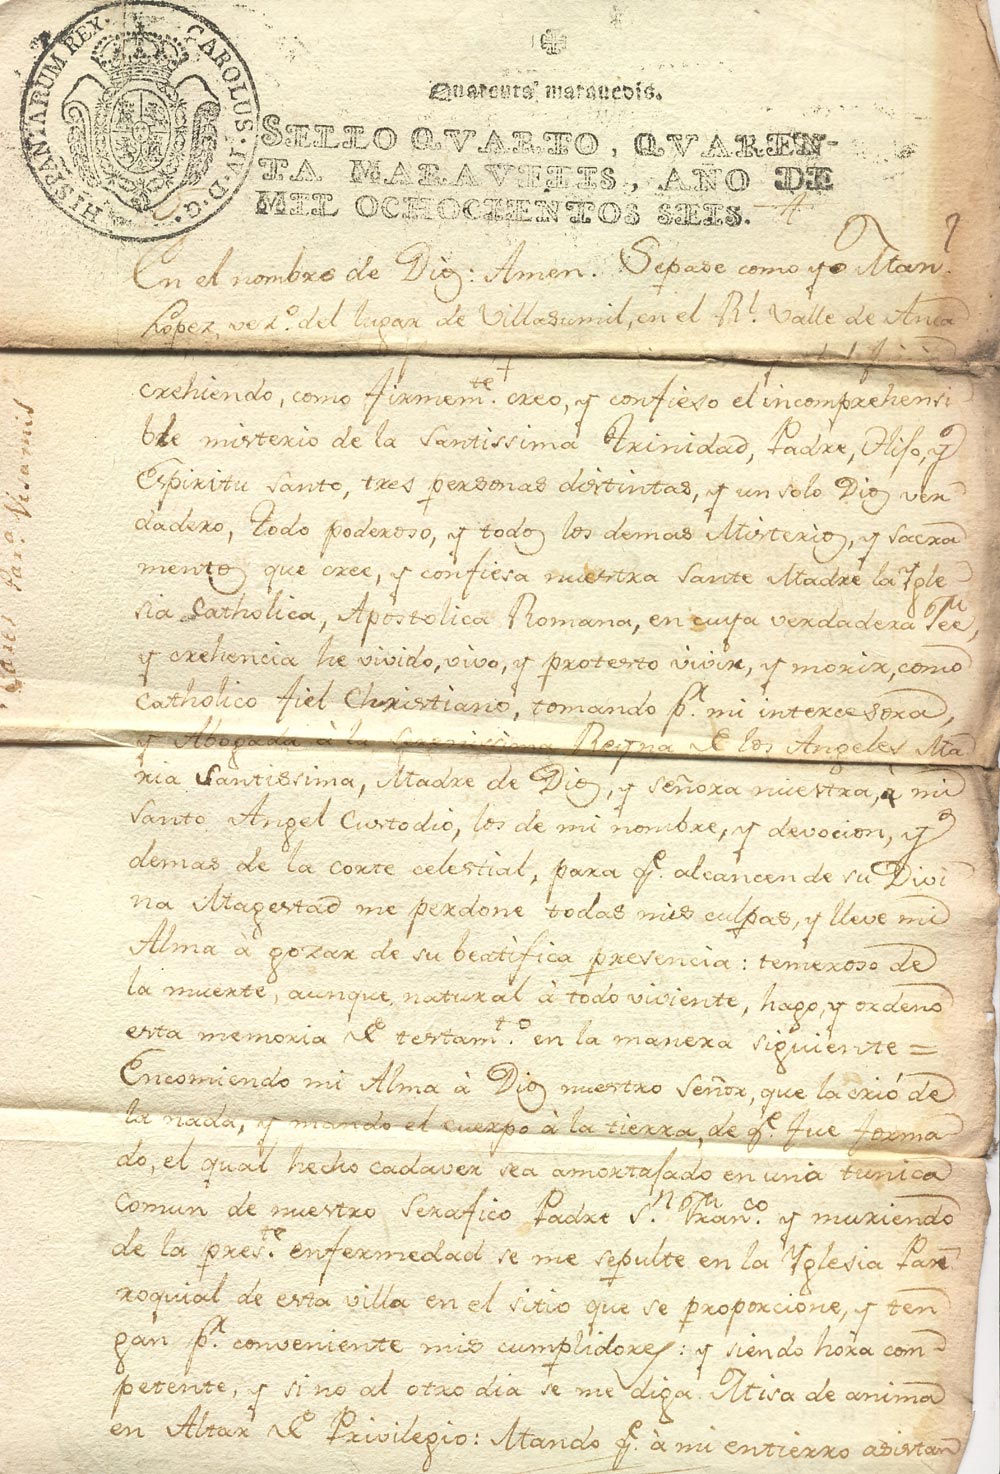 HISPANIARUM REX. CAROLUS. IV. D. G.
Quarenta marauedis.
SELLO QVARTO, QVAREN-
TA MARAVEDIS, AÑO DE
MIL OCHOCIENTOS SEIS.
En el nombre de Dios: Amen. Sepase como yo Man.
Lopez, vez.º del lugar de Villasumil, en el Rl. Valle de Anca
crehiendo, como firmem.te creo, y confieso el incomprehensi
ble misterio de la Santissima Trinidad, Padre, Hijo, y
Espiritu Santo, tres personas distintas, y un solo Dios ver
dadero, todo poderoso, y todos los demas Misterios, y Sacra
mentos que cree, y confiesa nuestra Sante Madre la Ygle
sia Catholica, Apostolica Romana, en cuya verdadera Fee,
y crehencia he vivido, vivo, y protesto vivir, y morir, como
Catholico fiel Christiano, tomando pr. mi intercesora,
y Abogada à la Serenissima Reyna de los Angeles Ma
ria Santissima, Madre de Dios, y señora nuestra, à mi
Santo Angel Custodio, los de mi nombre, y devocion, y
demas de la corte celestial, para qe. alcancen de su Divi
na Magestad me perdone todas mis culpas, y lleve mi
Alma à gozar de su beatifica presencia: temeroso de
la muerte, aunque natural à todo viviente, hago, y ordeno
esta memoria de testam.to en la manera siguiente =
Encomiendo mi Alma à Dios nuestro Señor, que la crió de
la nada, y mando el cuerpo à la tierra, de qe. fue forma
do, el qual hecho cadaver sea amortajado en una tunica
comun de nuestro Serafico Padre Sn. Franco. y muriendo
de la pres.te enfermedad se me sepulte en la Yglesia Par
roquial de esta villa en el sitio que se proporcione, y ten
gan pr. conveniente mis cumplidores: y siendo hora com-
petente, y si no al otro dia se me diga Misa de anima
en Altar de Privilegio: Mando qe. à mi entierro asistan